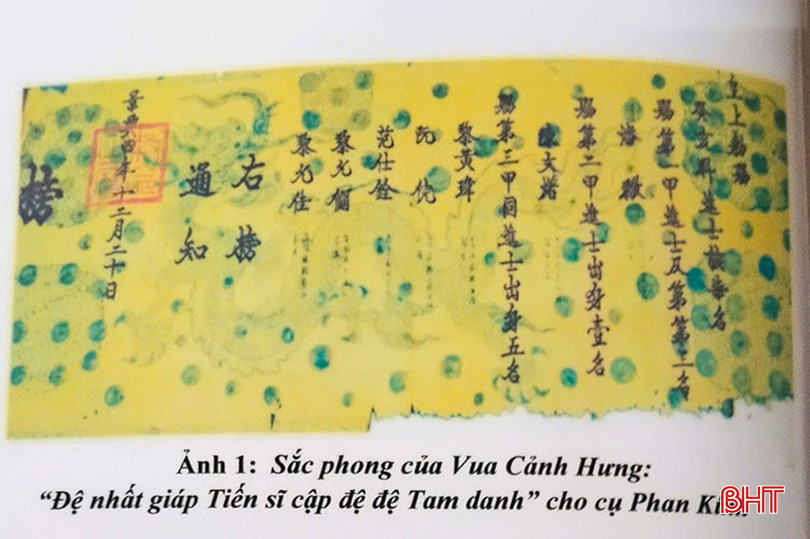 皇上勅賜
癸亥科進士該柒名
賜第一甲進士及第第三名
潘敬
賜第二甲進士出身壹名
陳大
賜第三甲同進士出身五名
黎黃瑋
阮
范仕銓
黎允
黎允
右榜
通知
景興四年十二月二十日
榜
Ảnh 1: Sắc phong của Vua Cảnh Hưng:
“Đệ nhất giáp Tiến sĩ cập đệ đệ Tam danh” cho cụ Phan
BHT